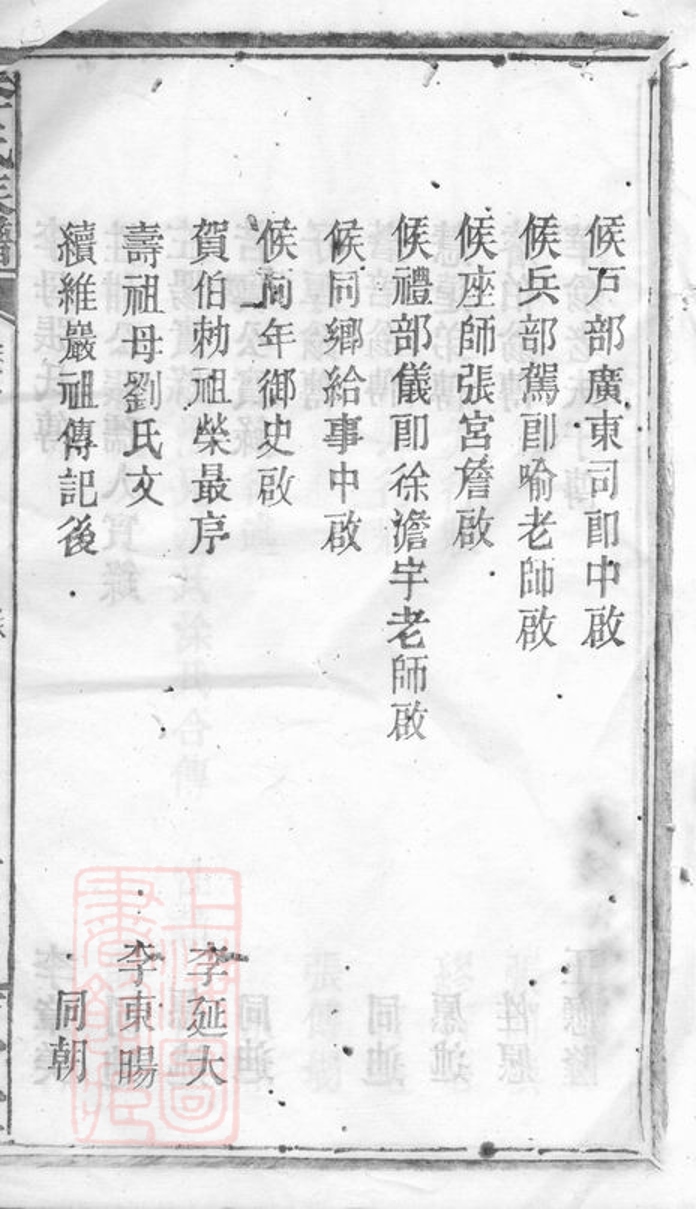 候戸部廣東司郎中啟
候兵部駕郎喻老師啟
候座師張宮詹啟
候禮部儀郎徐澹宇老師啟
候同鄉給事中啟
候同年御史啟
賀伯勅祖榮最序 李延大
壽祖母劉氏文 李東暘
續維嚴祖傳記後 同朝
李氏族譜
上海圖書館藏